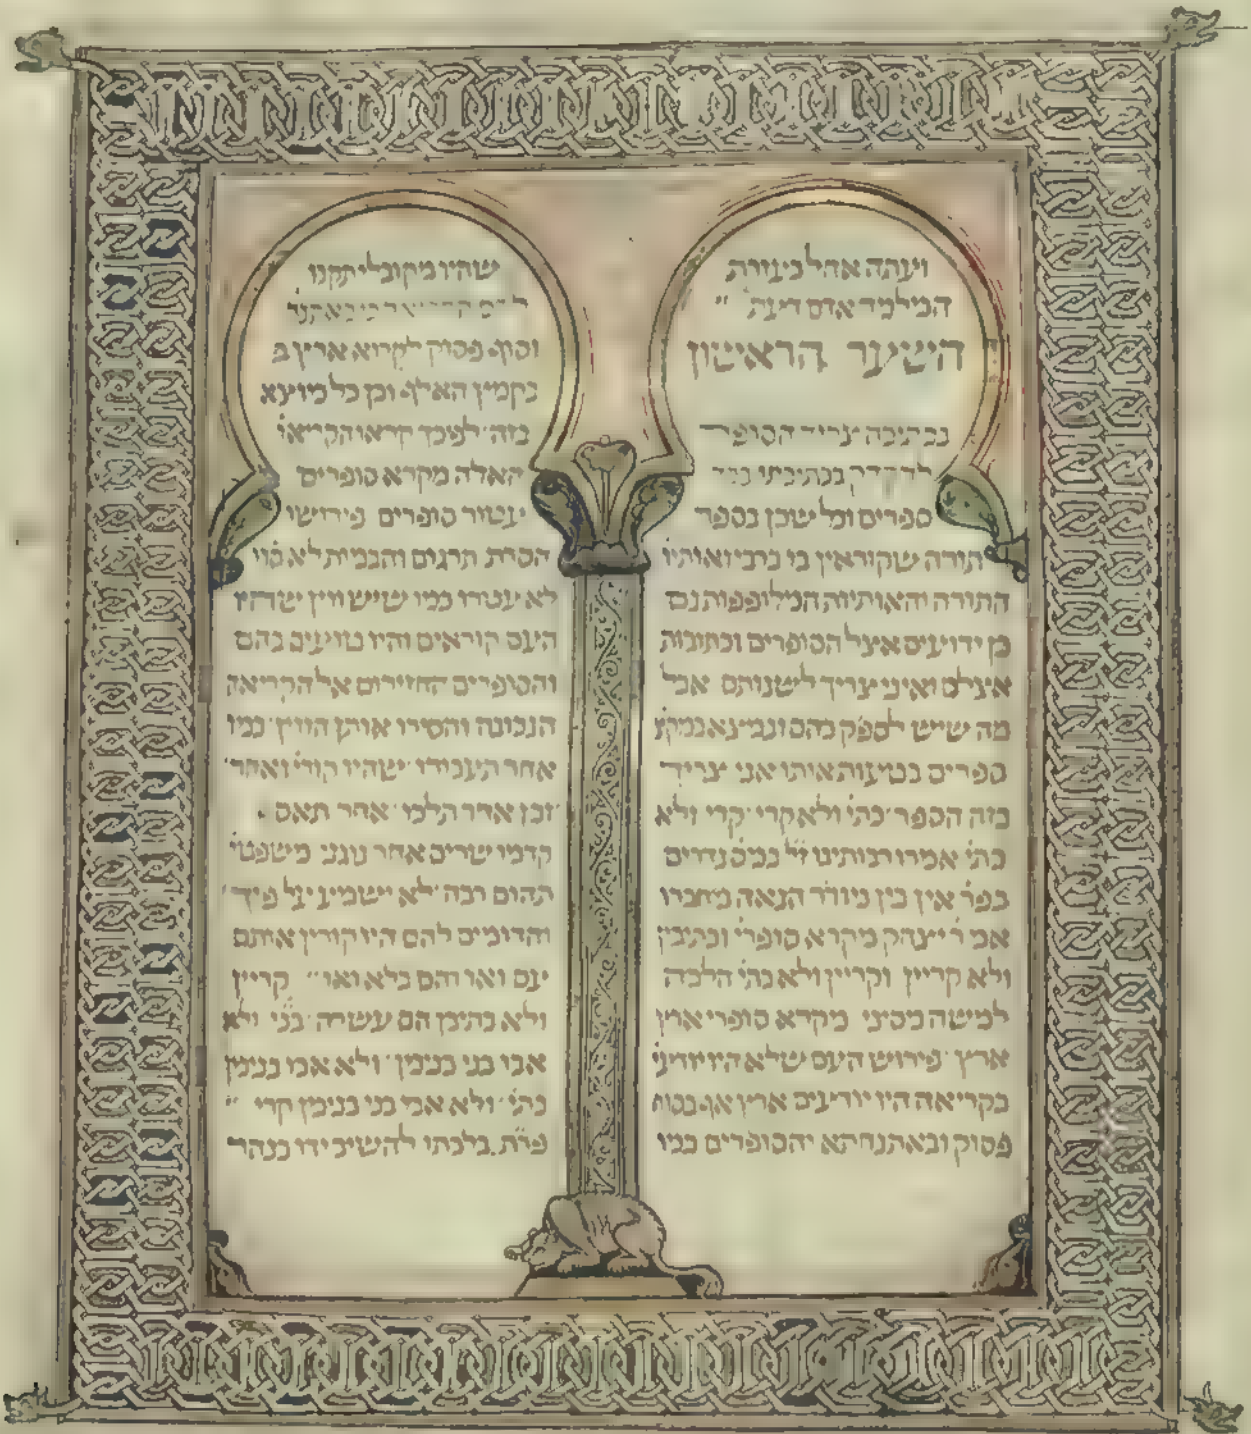 ועתה אחל בעזרת
המלמד אדם דעת
השער הראשון
בכתיבה צריך הסופר
לדקדק בכתיבתו
ספרים וכל שכן בספר
תורה שקוראין בו ברבי ואותיו
התורה והאותיות המלופפות גם
כן ידועים אצל הסופרים וכתובות
אצלם ואיני צריך לשנותם אבל
מה שיש לספק בהם ונמצא במקצ
ספרים בטעות אותו אני צריך
בזה הספר כת׳ ולא קרי קרי ולא
כת׳ אמרו רבותינו ז״ל במס נדרים
בפר אין בין המודר הנאה מחברו
אמ ר׳ יצחק מקרא סופרי׳ וכתיבין
ולא קריין וקריין ולא כתי׳ הלכה
למשה מסיני מקרא סופרי ארץ
ארץ פירוש העם שלא היו יודעי׳
בקריאה היו יודעים ארץ אף בסוף
פסוק ובאתנחתא והסופרים כמו
שהיו מקובלי תקנו
וסוף פסוק לקרוא ארץ ב
בקמץ האלף וכן כל מוצא
בזה לפיכך קראו הקריאו׳
האלה מקרא סופרים
עטור סופרים פירוש
הסרת תרגום והבמית לא סוי
לא עטרו כמו שיש ווין שהיו
העם קוראים והיו טועים בהם
והסופרים החזירום אל הקריאה
הנכונה והסירו אותן הווין כמו
אחר תעבורו שהיו קור׳ ואחר
וכן אחר תלכי אחר תאסף
קדמו שרים אחר נוגני משפטי׳
תהום רבה לא ישמיע על פיך
והדומים להם היו קורין אותם
עם ואו והם בלא ואו קריין
ולא כתיבן הם עשרה בני ולא
אבו בני בנימן ולא אמ בנימן
כתי׳ ולא אמ בני בנימן קרי
פרת בלכתו להשיב ידו בנהר